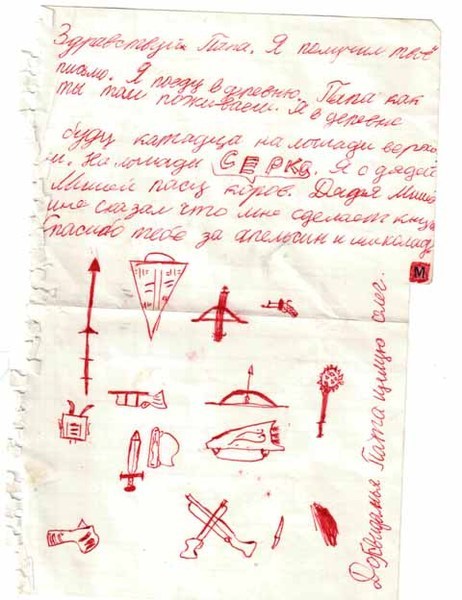 Здравствуй Папа. Я получил твоё
письмо. Я поеду в деревню. Папа как
ты там поживаеш. Я в деревне
буду катадца на лошади верхо
м. На лошади СЕРКЕ. Я с дядей
Мишей пасу коров. Дядя Миша
мне сказал что мне сделает
Спасибо тебе за апельсин и шиколад
М
Досвиданья Папа цилую олег.